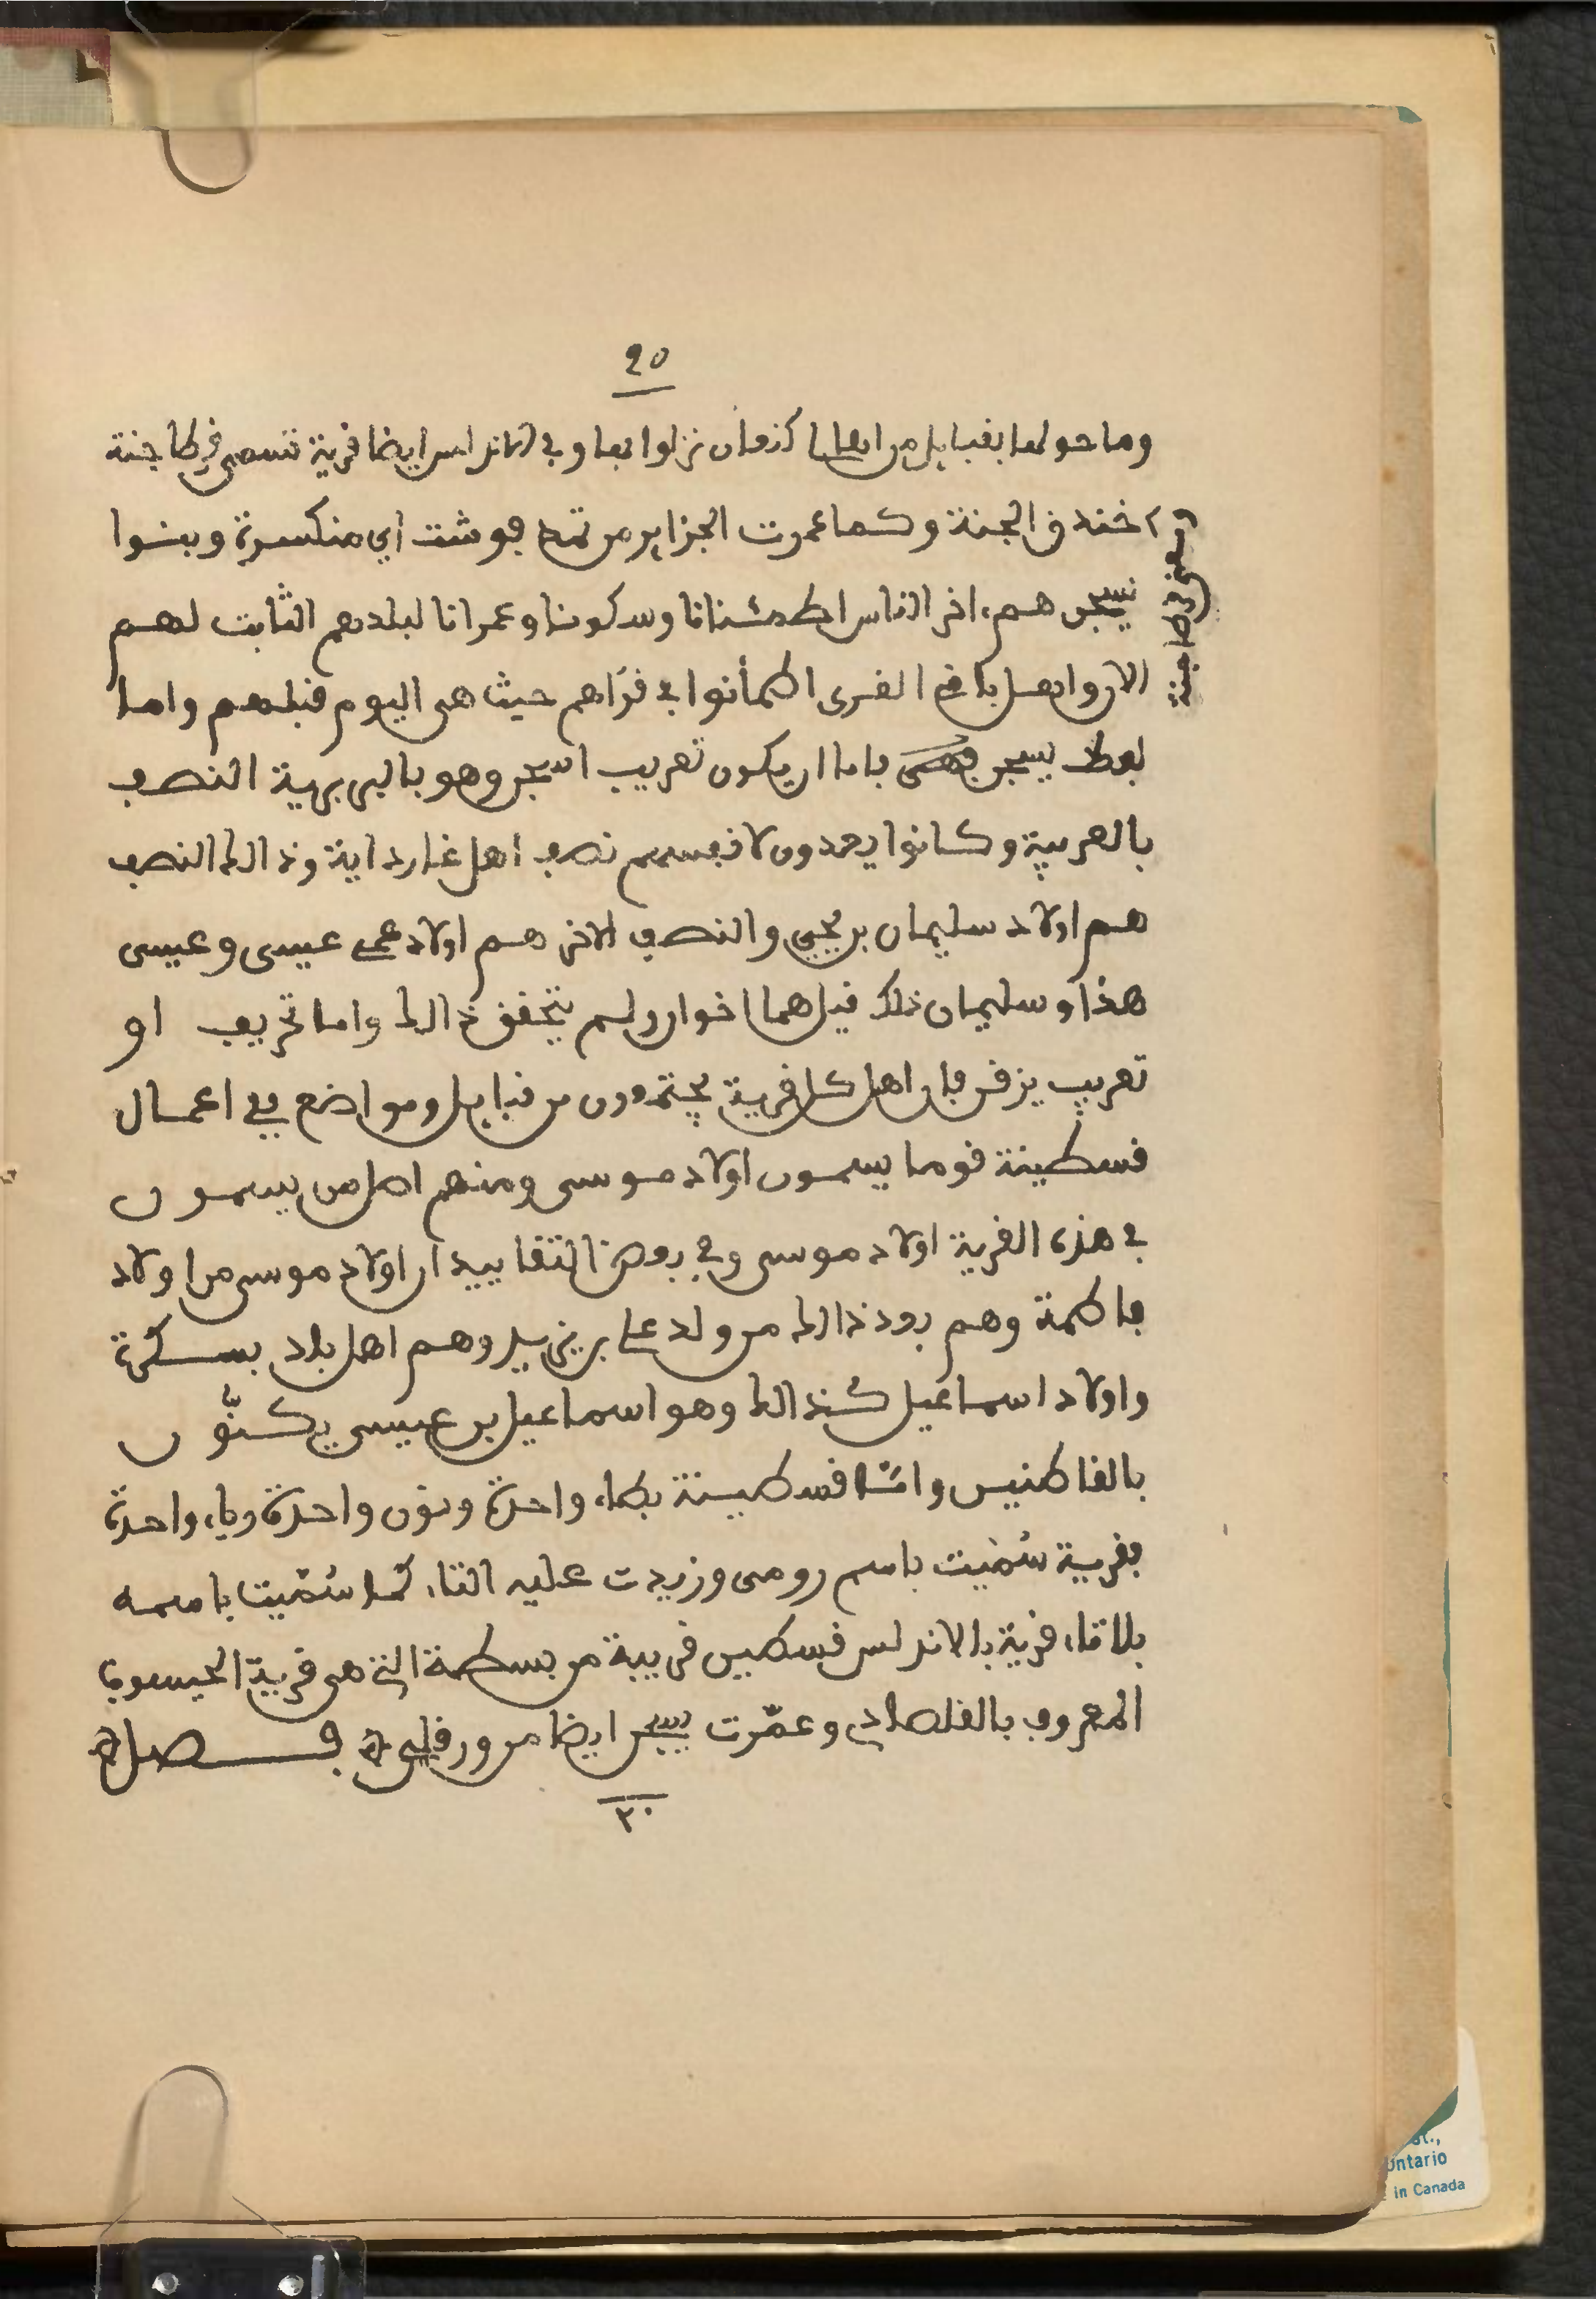 ٢٥
وما حولها بقبايل من اهلها كزمان نزلوا بها وفي الاندلس ايضا قرية تسمى قرطاجنة
خندق الجنة وكما عمرت الجزاير من تمد جوشت اي منكسرة وبنوا
يسجن هم ءاخر الناس اطمئنانا وسكونا وعمرانا لبلدهم الثابت لهم
الان واهل باقي القرى اطمأنوا في قراهم حيث هي اليوم قبلهم واما
لفظ يسجن فاما ان يكون تعريب اسجن وهو بالبربرية النصف
بالعربية وكانوا يعدون لانفسهم نصف اهل غارداية وذالك النصف
هم اولاد سليمان بن يحيى والنصف الاخر هم اولاد عمي عيسى وعيسى
هذا وسليمان ذلك قيل هما اخوان ولم يتحقق ذالك واما تحريف او
تعريب يزقن فان اهل كل قرية يجتمعون من قبايل ومواضع ففي اعمال
قسطينة قوما يسمون اولاد موسى ومنهم اصل من يسمون
في هذه القرية اولاد موسى وفي بعض التقاييد ان اولاد موسى من اولاد
فاطمة وهم بعد ذالك من ولد علي بن يزيد وهم اهل بلاد بسكرة
واولاد اسماعيل كذالك وهو اسماعيل بن عيسى يكنّون
بالفاطنيين وامّا قسطينة بطاء واحدة ونون واحدة وياء واحدة
فقرية سُمّيت باسم رومي وزيدت عليه التاء كما سُمّيت باسمه
بلا تاء قرية بالاندلس قسطين قريبة من بسطة التي هي قرية الحيسوبي
المعروف بالقلصادي وعمّرت يسجن ايضا من ورقلي ه فصل ه
معنى قرطاجنة
٢٠